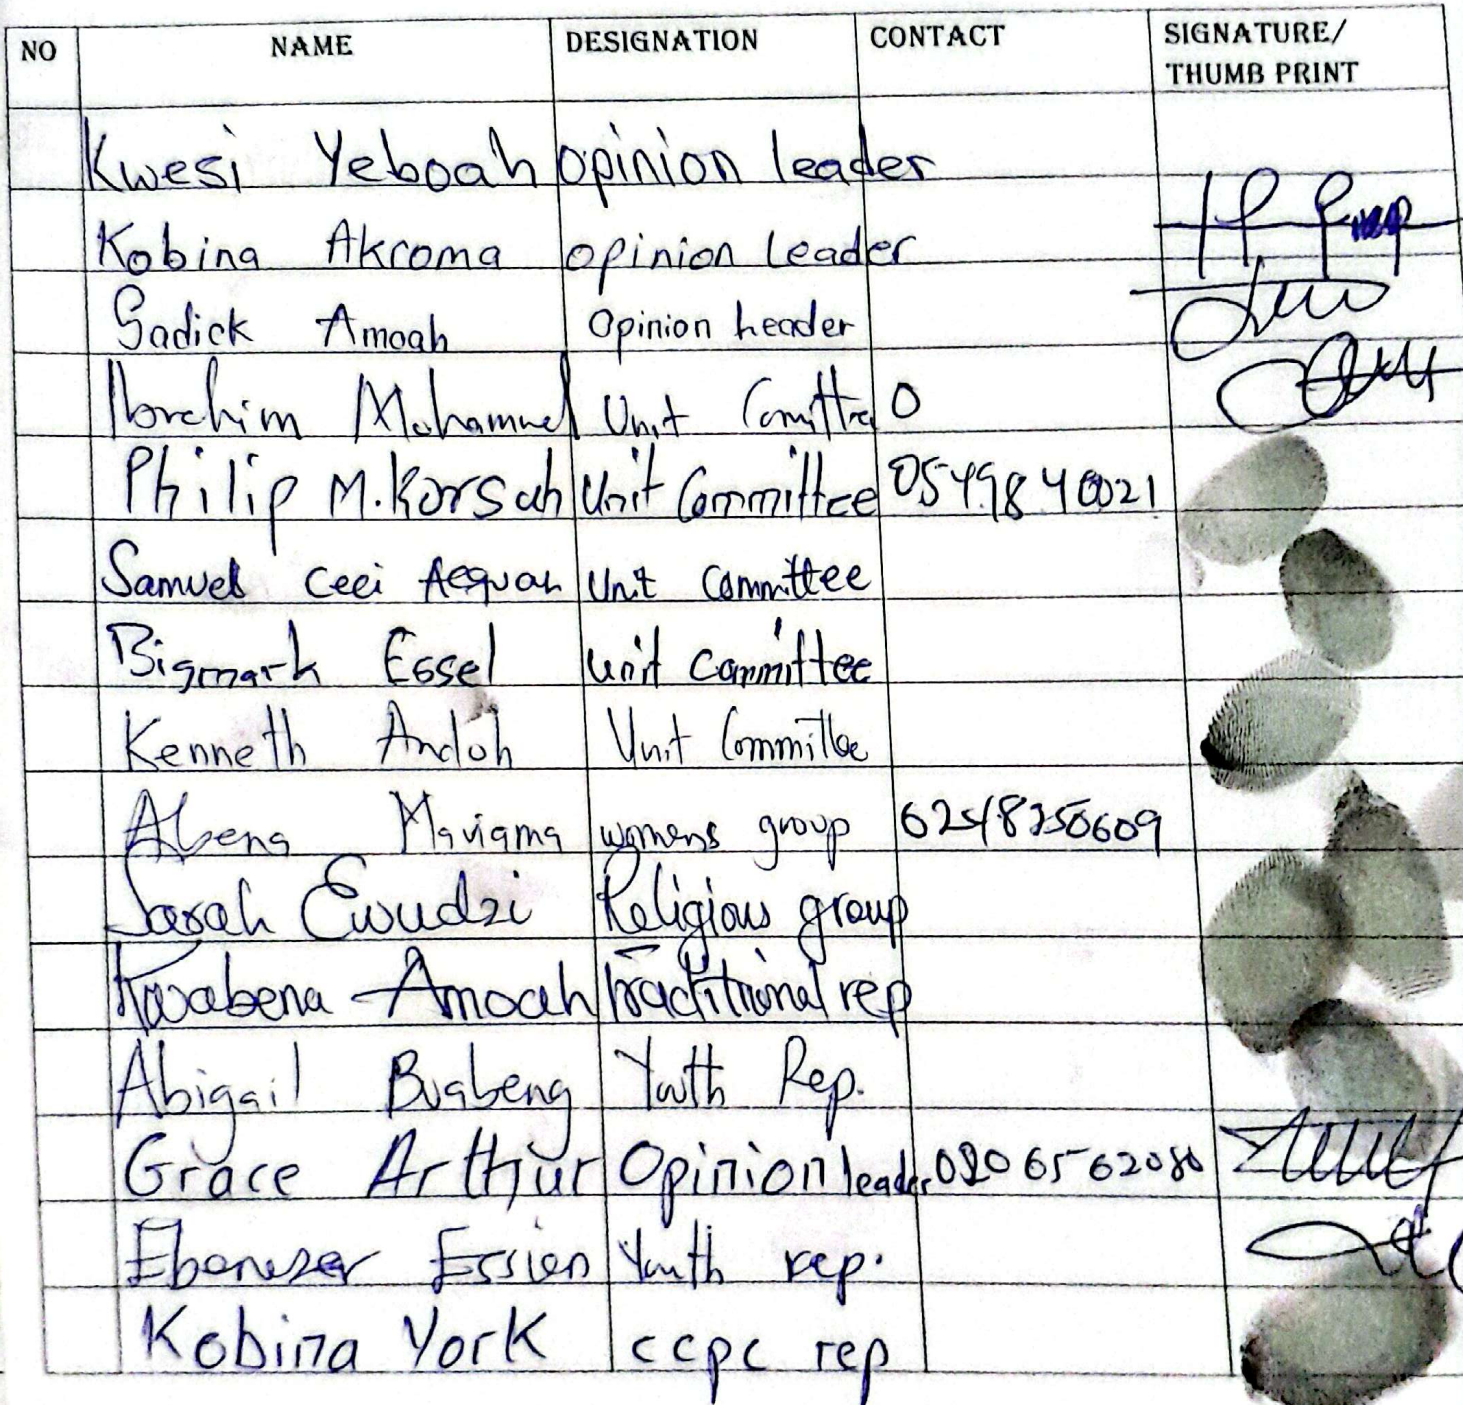 NO NAME DESIGNATION CONTACT SIGNATURE/
THUMB PRINT
Kwesi Yeboah opinion leader
Kobina Akroma opinion leader
Sadick Amoah Opinion header
Ibrahim Mohammed Unit Comittee 0
Philip M. Korsah Unit Committee 0549840021
Samuel Unit Committee
Bigmark Essel unit committee
Kenneth Andoh Unit Committee
Abena Mariama womens group
Sarah Ewudzi Religious group
Kwabena Amoah Traditional rep
Abigail Buabeng Youth Rep.
Grace Arthur Opinion leader
Ebenezer Essien Youth rep.
Kobina York ccpc rep